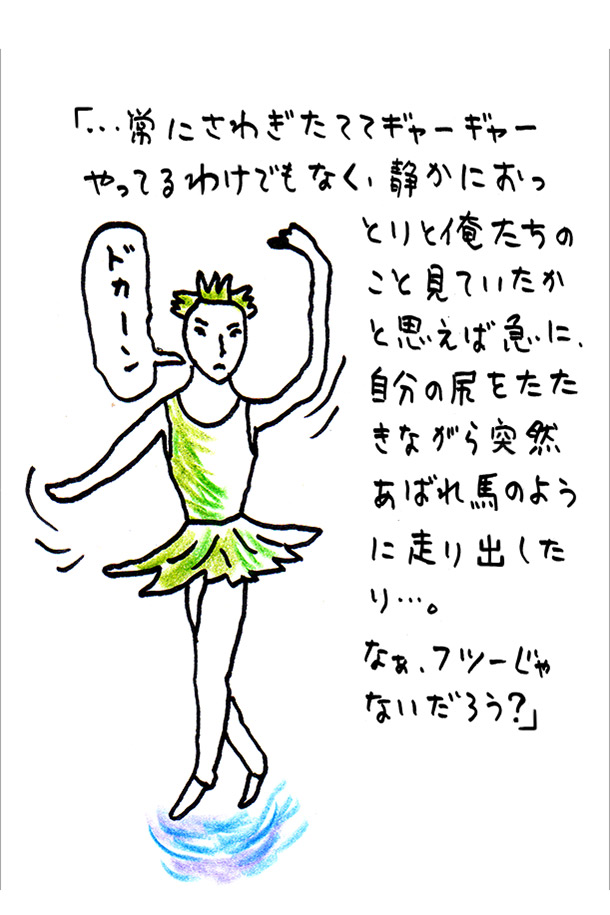 「…常にさわぎたててギャーギャー
やってるわけでもなく、静かにおっ
とりと俺たちの
こと見ていたか
と思えば急に、
自分の尻をたた
きながら突然
あばれ馬のよう
に走り出した
り…。
なぁ、フツーじゃ
ないだろう?」
ドカーン